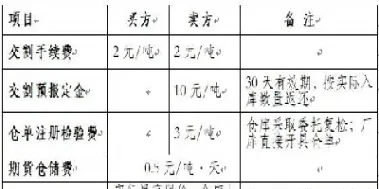 项目 买方 卖方 备注
交割手续费 2元/吨 2元/吨
交割预报定金 10元/吨 30天有效期，按实际入
库数量返还
仓单注册检验费 3元/吨 仓库采取委托复检；厂
库直接开具仓单
期货仓储费 0.5元/吨·天